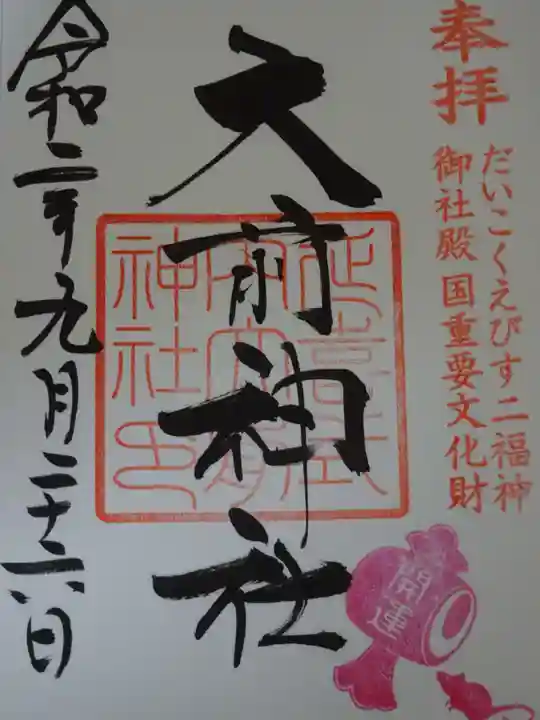 奉拝
だいこくえびす二福神
御社殿 国重要文化財
大前神社
延喜式内
神社印
開運
令和二年九月二十六日